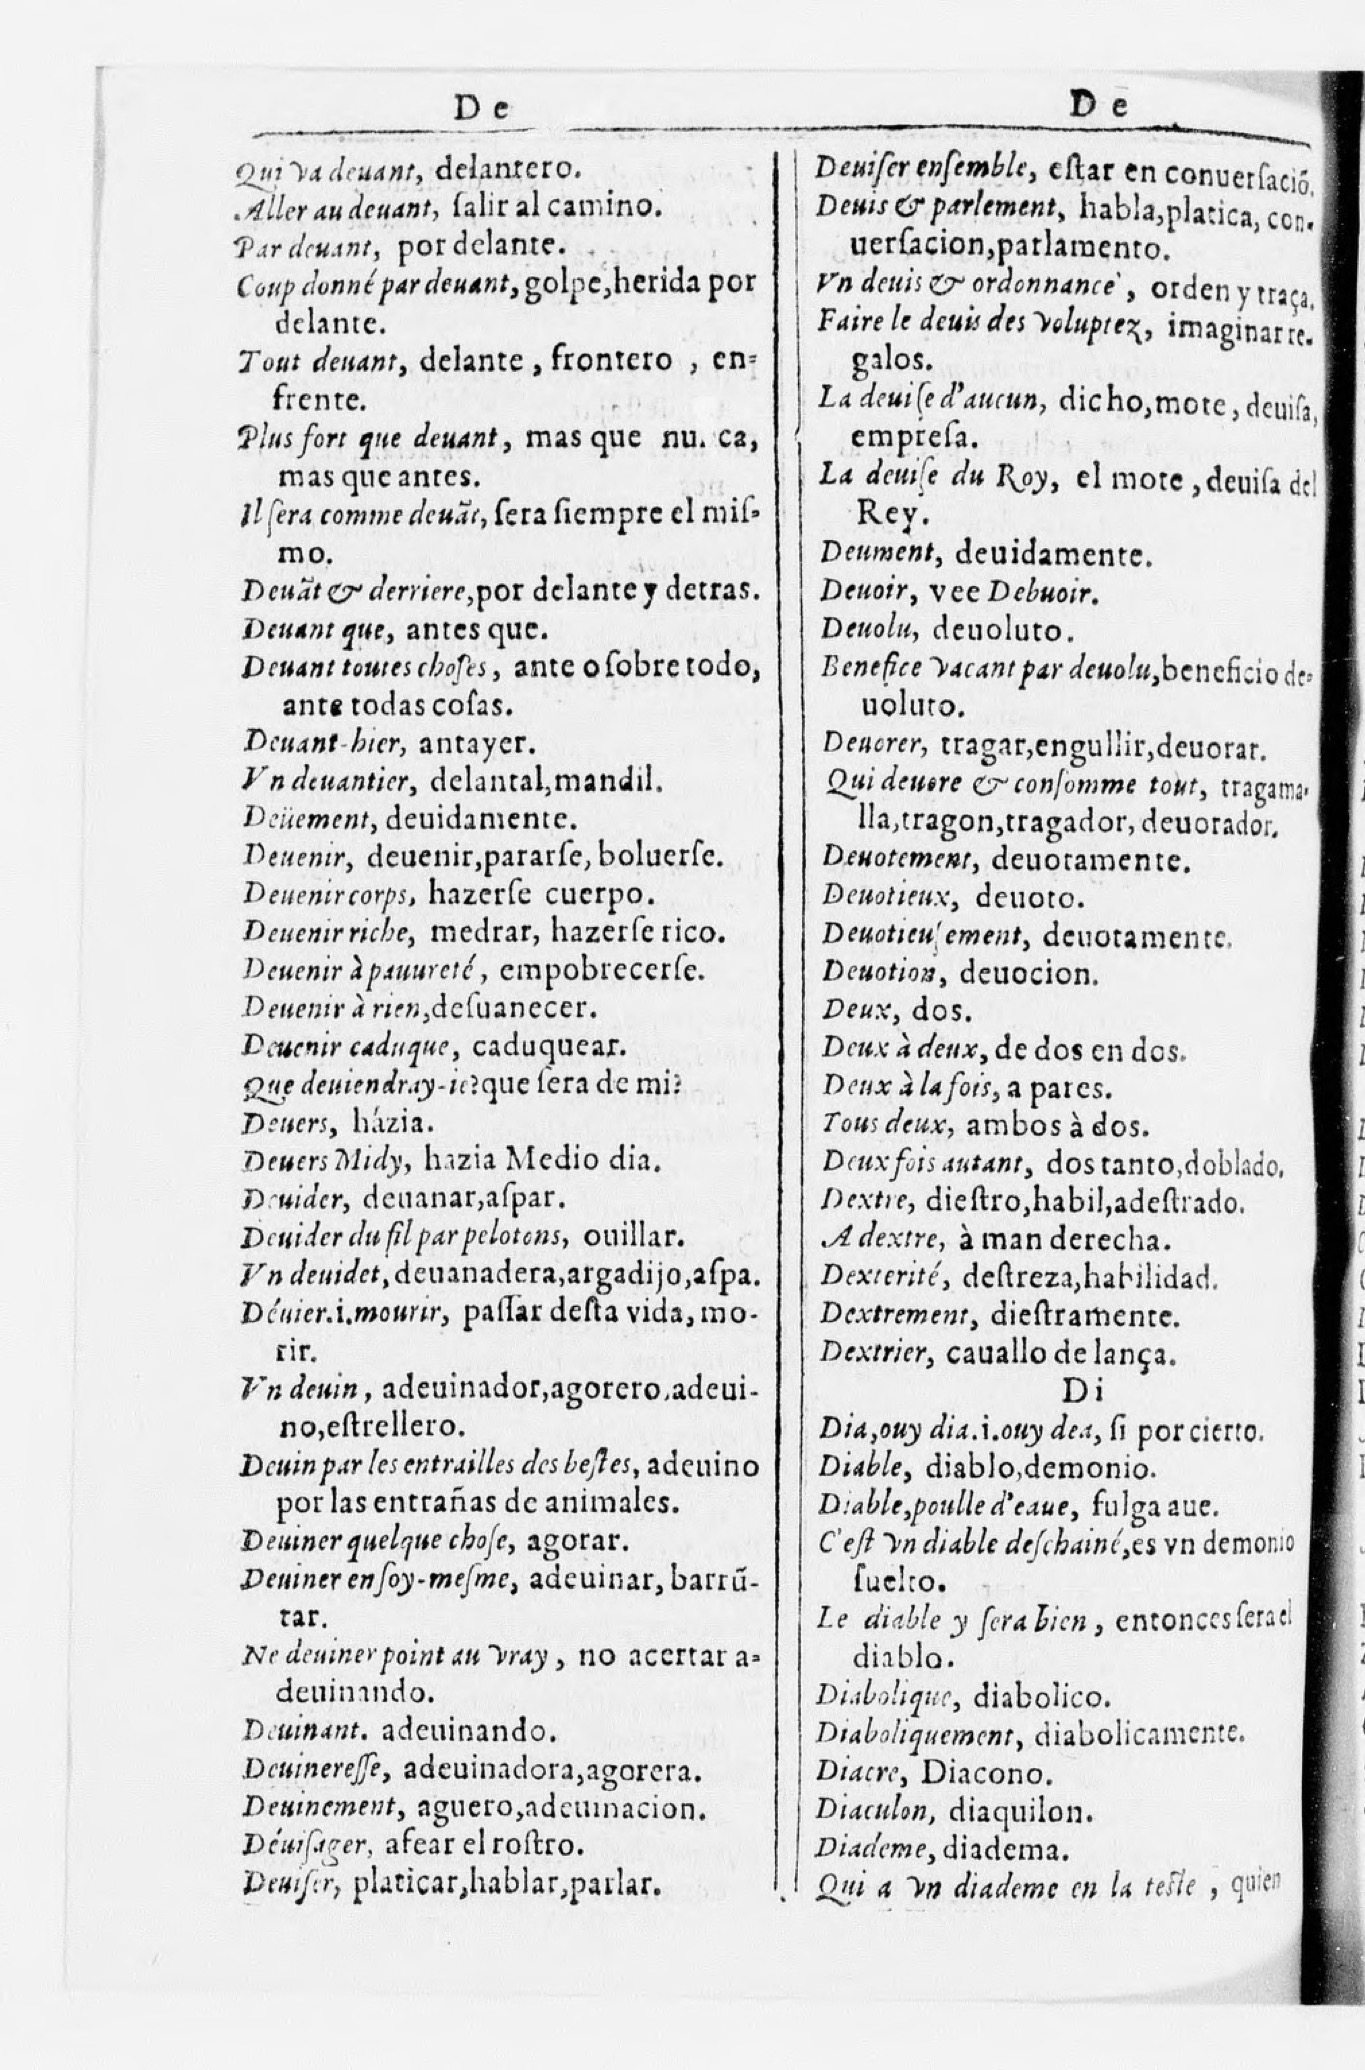 De
Qui va deuant, delantero.
Aller au deuant, ſalir al camino.
Par deuant, por delante.
Coup donné par deuant, golpe, herida por
delante.
Tout deuant, delante, frontero, en-
frente.
Plus fort que deuant, mas que nu. ca,
mas que antes.
Il ſera comme deuãt, ſera ſiempre el miſ-
mo.
Deuãt & derriere, por delante y detras.
Deuant que, antes que.
Deuant toutes choſes, ante o ſobre todo,
ante todas coſas.
Deuant-hier, antayer.
Vn deuantier, delantal, mandil.
Deüement, deuidamente.
Deuenir, deuenir, pararſe, boluerſe.
Deuenir corps, hazerſe cuerpo.
Deuenir riche, medrar, hazerſe rico.
Deuenir à pauureté, empobrecerſe.
Deuenir à rien, deſuanecer.
Deuenir caduque, caduquear.
Que deuiendray-ie? que ſera de mi?
Deuers, házia.
Deuers Midy, hazia Medio dia.
Deuider, deuanar, aſpar.
Deuider du fil par pelotons, ouillar.
Vn deuidet, deuanadera, argadijo, aſpa.
Déuier. i. mourir, paſſar deſta vida, mo-
rir.
Vn deuin, adeuinador, agorero, adeui-
no, eſtrellero.
Deuin par les entrailles des beſtes, adeuino
por las entrañas de animales.
Deuiner quelque choſe, agorar.
Deuiner en ſoy-meſme, adeuinar, barrũ-
tar.
Ne deuiner point au vray, no acertar a-
deuinando.
Deuinant. adeuinando.
Deuinereſſe, adeuinadora, agorera.
Deuinement, aguero, adeuinacion.
Déuiſager, afear el roſtro.
Deuiſer, platicar, hablar, parlar.
De
Deuiſer enſemble, eſtar en conuerſaciõ.
Deuis & parlement, habla, platica, con-
uerſacion, parlamento.
Vn deuis & ordonnance, orden y traça.
Faire le deuis des voluptez, imaginar re-
galos.
La deuiſe d'aucun, dicho, mote, deuiſa,
empreſa.
La deuiſe du Roy, el mote, deuiſa del
Rey.
Deument, deuidamente.
Deuoir, vee Debuoir.
Deuolu, deuoluto.
Benefice vacant par deuolu, beneficio de-
uoluto.
Deuorer, tragar, engullir, deuorar.
Qui deuore & conſomme tout, tragama-
lla, tragon, tragador, deuorador.
Deuotement, deuotamente.
Deuotieux, deuoto.
Deuotieuſement, deuotamente.
Deuotion, deuocion.
Deux, dos.
Deux à deux, de dos en dos.
Deux à la fois, a pares.
Tous deux, ambos à dos.
Deux fois autant, dos tanto, doblado.
Dextre, dieſtro, habil, adeſtrado.
A dextre, à man derecha.
Dexterité, deſtreza, habilidad.
Dextrement, dieſtramente.
Dextrier, cauallo de lança.
Di
Dia, ouy dia. i. ouy dea, ſi por cierto.
Diable, diablo, demonio.
Diable, poulle d'eaue, fulga aue.
C'eſt vn diable deſchainé, es vn demonio
ſuelto.
Le diable y ſera bien, entonces ſera el
diablo.
Diabolique, diabolico.
Diaboliquement, diabolicamente.
Diacre, Diacono.
Diaculon, diaquilon.
Diademe, diadema.
Qui a vn diademe en la teſte, quien